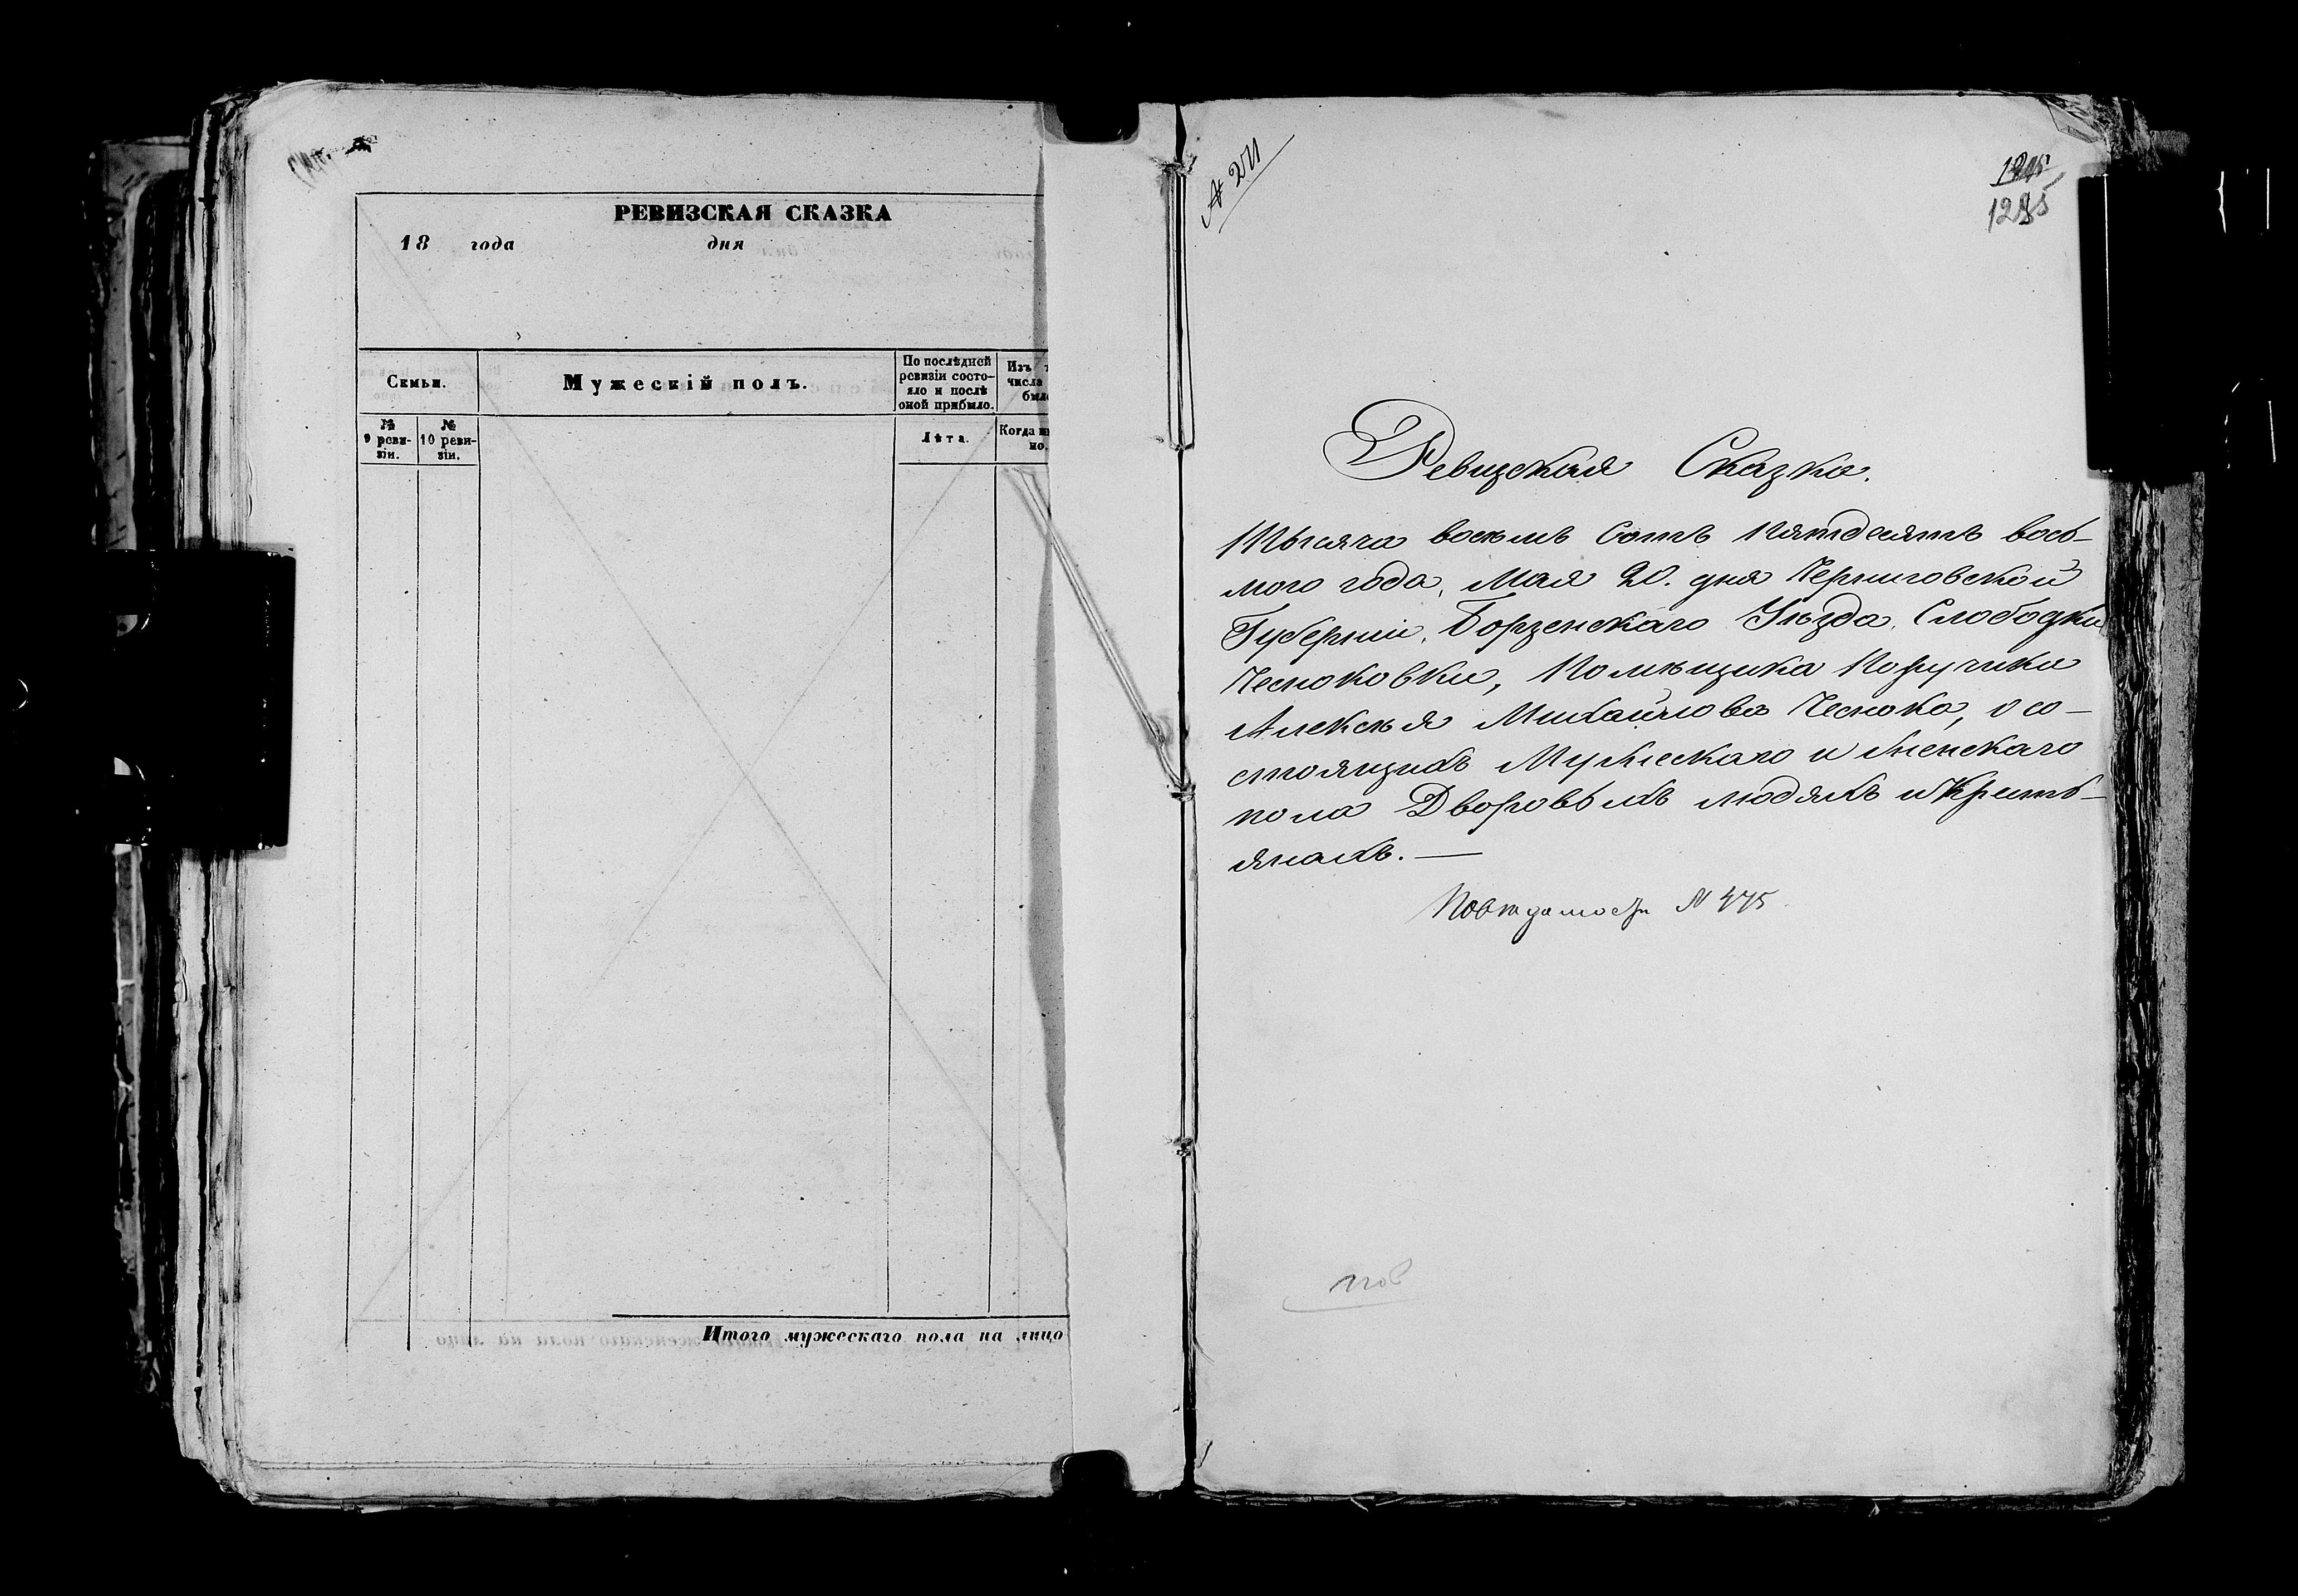 РЕВИЗСКАЯ СКАЗКА
18 года дня
Семьи.
Мужескій полъ.
По послѣдней
ревизіи состо-
яло и послѣ
оной прибыло.
Изъ
числа
№
9 реви-
зіи.
№
10 реви-
зіи.
Лѣта.
Когда
Итого мужескаго пола на лицо
№ 271
1285
Ревизская Сказка.
Тысяча восемь сотъ пятдесятъ вось-
мого года, Мая 20. дня Черниговской
Губерніи, Борзенскаго Уѣзда, Слободки
Чесноковки, Помѣщика Поручика
Алексѣя Михайлова Чеснока, о со-
стоящихъ Мужескаго и женскаго
пола Дворовыхъ людяхъ и Кресть-
янахъ. —
По вѣдомости № 475